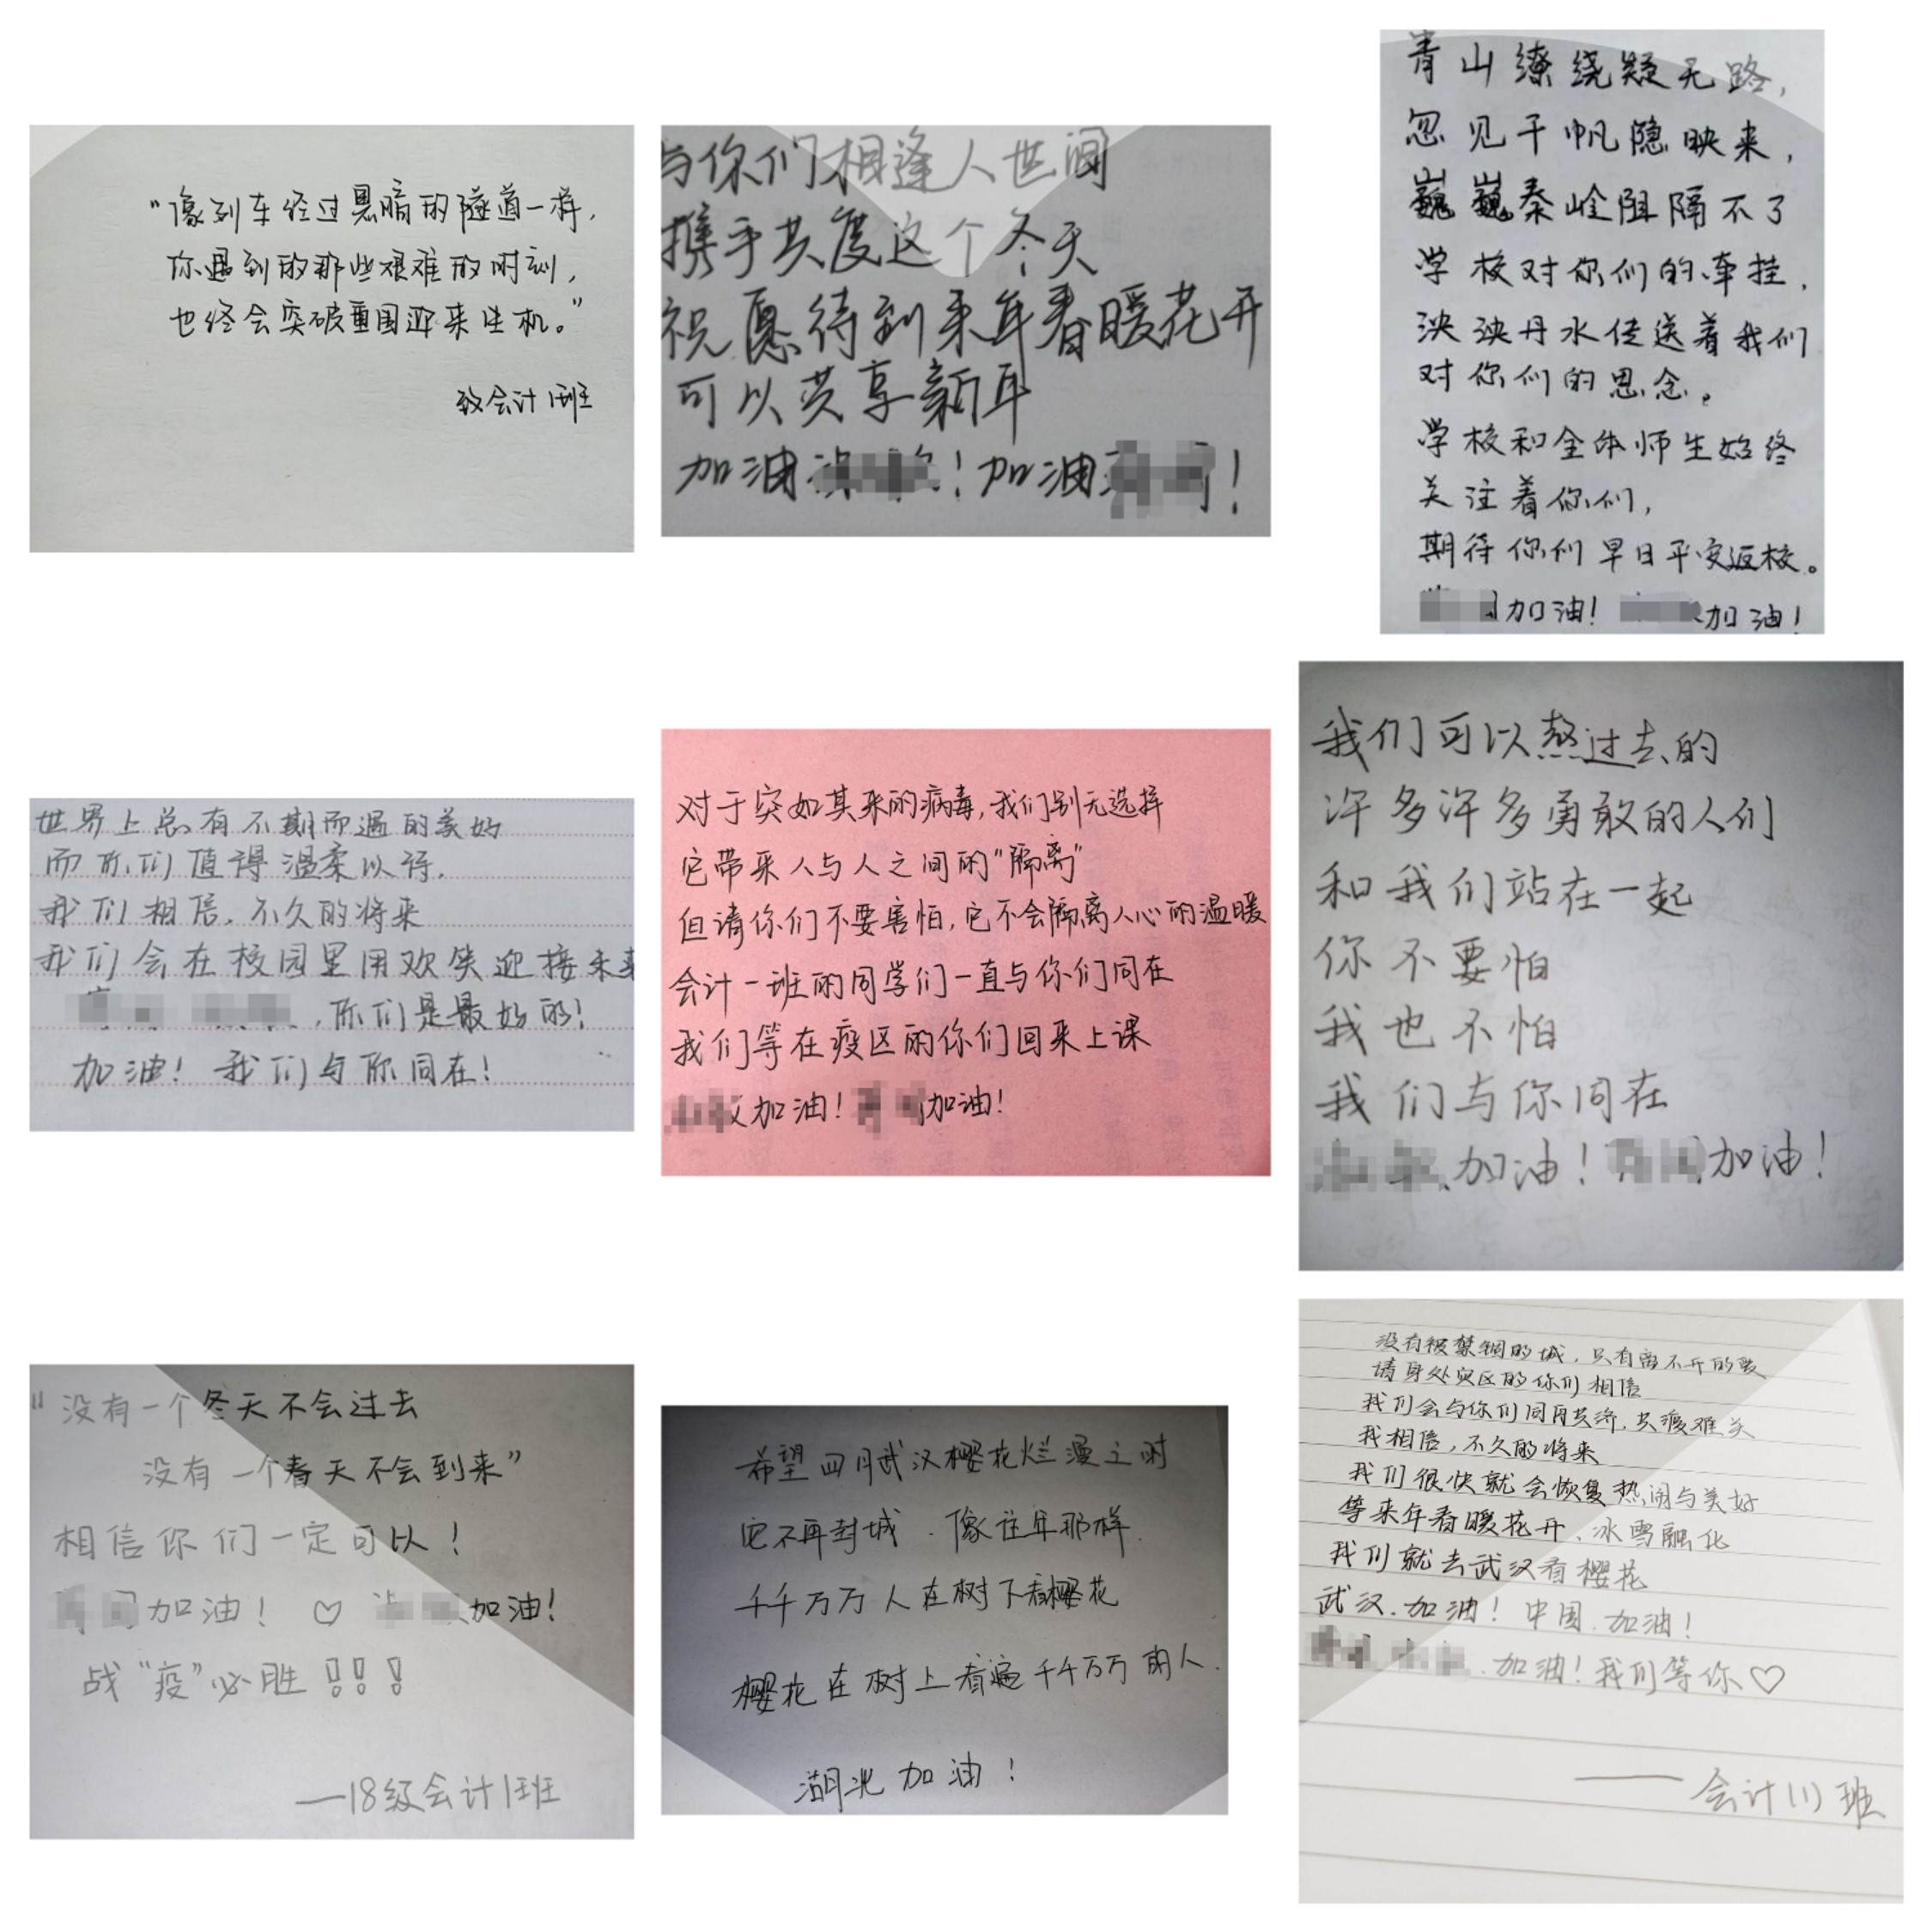 “像列车经过黑暗的隧道一样,
你遇到的那些艰难的时刻,
也终会突破重围迎来生机。”
致会计1班
与你们相逢人世间
携手共度这个冬天
祝愿待到来年春暖花开
可以共享新年
加油!加油!
青山缭绕疑无路,
忽见千帆隐映来,
巍巍秦岭阻隔不了
学校对你们的牵挂,
泱泱丹水传送着我们
对你们的思念。
学校和全体师生始终
关注着你们,
期待你们早日平安返校。
加油!加油!
世界上总有不期而遇的美好
而你们值得温柔以待.
我们相信.不久的将来
我们会在校园里用欢笑迎接未来
,你们是最好的!
加油!我们与你同在!
对于突如其来的病毒,我们别无选择
它带来人与人之间的“隔离”
但请你们不要害怕,它不会隔离人心的温暖
会计一班的同学们一直与你们同在
我们等在疫区的你们回来上课
加油!加油!
我们可以熬过去的
许多许多勇敢的人们
和我们站在一起
你不要怕
我也不怕
我们与你同在
加油!加油!
“没有一个冬天不会过去
没有一个春天不会到来”
相信你们一定可以!
加油!♡加油!
战“疫”必胜!!!
—18级会计1班
希望四月武汉樱花烂漫之时
它不再封城.像往年那样.
千千万万人在树下看樱花
樱花在树上看遍千千万万的人.
湖北加油!
没有被禁锢的城,只有离不开的爱
请身处灾区的你们相信
我们会与你们同舟共济,共渡难关
我相信,不久的将来
我们很快就会恢复热闹与美好
等来年春暖花开、冰雪融化
我们就去武汉看樱花
武汉.加油!中国.加油!
.加油!我们等你♡
——会计(1)班